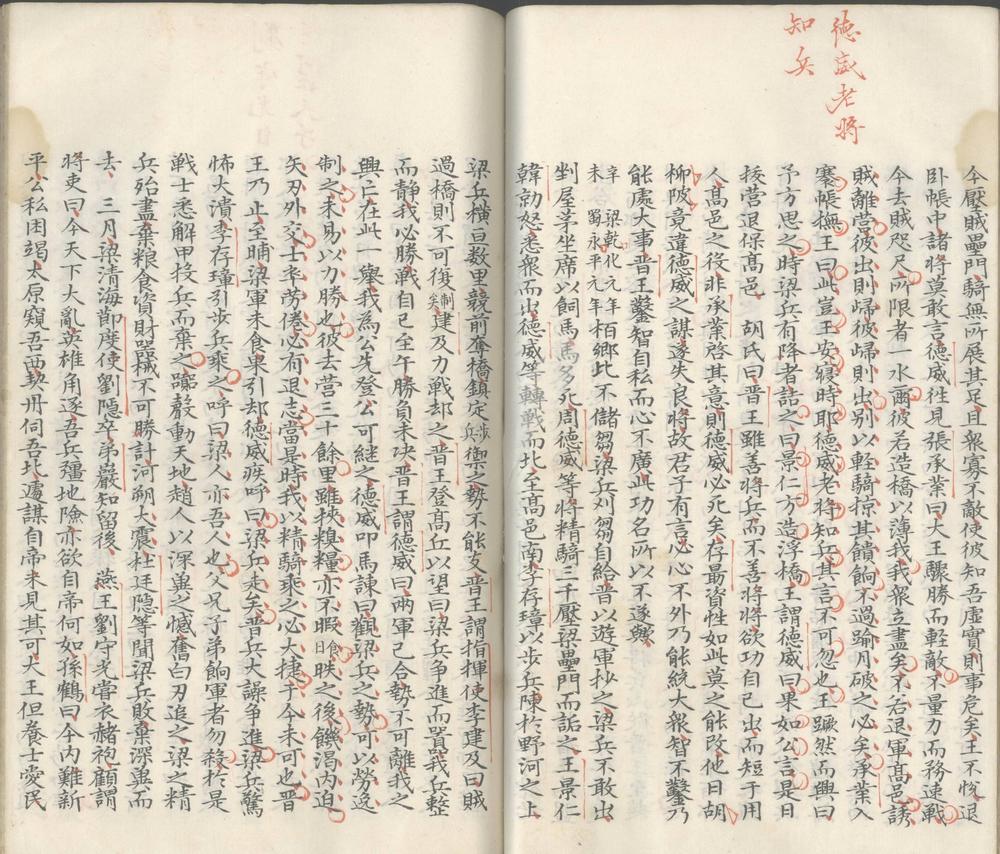 德威老將
知兵
今壓賊壘門騎無所展其足且衆寡不敵使彼知吾虛實則事危矣王不悅退
卧帳中諸將莫敢言德威徃見張承業曰大王驟勝而輕敵不量力而務速戰
今去賊咫尺所限者一水爾彼若造橋以薄我我衆立盡矣不若退軍高邑誘
賊離營彼出則歸彼歸則出别以輕騎掠其饋餉不過踰月破之必矣承業入
褰帳撫王曰此豈王安寢時耶德威老將知兵其言不可忽也王蹶然而興曰
予方思之時梁兵有降者詰之曰景仁方造浮橋王謂德威曰果如公言是日
拔營退保高邑 胡氏曰晉王雖善將兵而不善將將欲功自己出而短于用
人高邑之役非承業啓其意則德威必死矣存最資性如此莫之能改他日胡
柳陂竟違德威之謀遂失良將故君子有言心心不外乃能統大衆智不鑿乃
能處大事晉王鑿智自私而心不廣此功名所以不遂歟
辛未 梁乾化元年 蜀永平元年 柏鄉比不儲芻梁兵刈芻自給晉以遊軍抄之梁兵不敢出
剉屋茅坐席以飼馬馬多死周德威等將精騎三千壓梁壘門而詬之王景仁
韓勍怒悉衆而出德威等轉戰而北至高邑南李存璋以步兵陳於野河之上
梁兵橫亘数里競前奪橋鎮定步兵禦之勢不能支晉王謂指揮使李建及曰賊
過橋則不可復制矣建及力戰却之晉王登高丘以望曰梁兵争進而囂我兵整
而靜我必勝戰自己至午勝負未決晉王謂德威曰兩軍已合勢不可離我之
興亡在此一舉我為公先登公可継之德威叩馬諫曰觀梁兵之勢可以勞逸
制之未易以力勝也彼去營三十餘里雖挾糗糧亦不暇食日昳之後饑渴内迫
矢刃外交士卒勞倦必有退志當是時我以精騎乘之必大捷于今未可也晉
王乃止至晡梁軍未食果引却德威疾呼曰梁兵走矣晉兵大譟争進梁兵驚
怖大潰李存璋引步兵乘之呼曰梁人亦吾人也父兄子弟餉軍者勿殺於是
戰士悉解甲投兵而棄之囂聲動天地趙人以深兾之憾奮白刃追之梁之精
兵殆盡棄粮食資財噐械不可勝計河朔大震杜廷隱等聞梁兵敗棄深兾而
去 三月梁清海節度使劉隱卒弟巖知留後 燕王劉守光嘗衣赭袍顧謂
將吏曰今天下大亂英雄角逐吾兵彊地險亦欲自帝何如孫鶴曰今内難新
平公私困竭太原窺吾西契丹伺吾北遽謀自帝未見其可大王但養士愛民